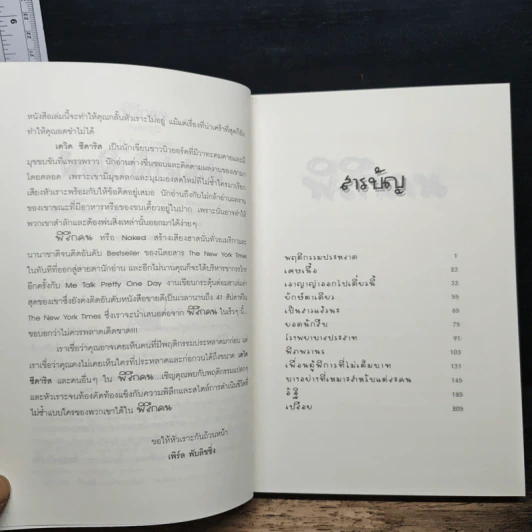 หนังสือเล่มนี้จะทำให้คุณกลั้นหัวเราะไม่อยู่ แม้แต่เรื่องที่น่าเศร้าที่สุดก็ยัง
ทำให้คุณอดขำไม่ได้
เดวิด ซีดาริส เป็นนักเขียนชาวนิวยอร์คที่มีวาทะคมคายและมี
มุขขบขันที่แพรวพราว นักอ่านต่างชื่นชอบและติดตามผลงานของเขามา
โดยตลอด เพราะเขามีมุขตลกและมุมมองสดใหม่ที่ไม่ซ้ำใครมาเรียก
เสียงหัวเราะพร้อมกับให้ข้อคิดอยู่เสมอ นักอ่านถึงกับไม่กล้าอ่านผลงาน
ของเขาขณะที่มีอาหารหรือของขบเคี้ยวอยู่ในปาก เพราะนั่นอาจทำให้
พวกเขาสำลักและต้องพ่นสิ่งเหล่านั้นออกมาได้ง่ายๆ
พิรึกคน หรือ Naked สร้างเสียงฮาสนั่นทั่วอเมริกาและ
นานาชาติจนติดอันดับ Bestseller ของนิตยสาร The New York Times
ในทันทีที่ออกสู่สายตานักอ่าน และอีกไม่นานคุณก็จะได้บริหารขากรรไกร
อีกครั้งกับ Me Talk Pretty One Day งานเขียนกระตุ้นต่อมฮาเล่มล่า
สุดของเขาซึ่งยังคงติดอันดับหนังสือขายดีเป็นเวลานานถึง 41 สัปดาห์ใน
The New York Times ซึ่งเราจะนำเสนอต่อจาก พิรึกคน ในเร็วๆ นี้
ขอบอกว่าไม่ควรพลาดเด็ดขาด!!!
เราเชื่อว่าคุณอาจเคยเห็นคนที่มีพฤติกรรมประหลาดมาก่อน แต่
เราเชื่อว่าคุณคงไม่เคยเห็นใครที่ประหลาดและก่อกวนได้ถึงขนาด เดวิด
ซีดาริส และคนอื่นๆ ใน พิรึกคน...เชิญคุณพบกับพฤติกรรมแปลกๆ
และหัวเราะจนท้องคัดท้องแข็งกับความพิลึกและสไตล์การดำเนินชีวิตที่
ไม่ซ้ำแบบใครของพวกเขาได้ใน พิรึกคน
ขอให้หัวเราะกันถ้วนหน้า
เพิร์ล พับลิชชิ่ง
สารบัญ
พฤติกรรมประหลาด 1
เศษเนื้อ 23
เอาญาญ่าออกไปเดี๋ยวนี้ 33
ยักษ์ตาเดียว 55
เป็นงานแล้วนะ 65
ยอดนักงีบ 79
โรงพยาบาลประสาท 91
พิภพวานร 103
เพื่อนผู้พิการที่ไม่เต็มบาท 131
บางอย่างที่เหมาะสำหรับแต่ละคน 145
อัฐิ 189
เปลือย 205